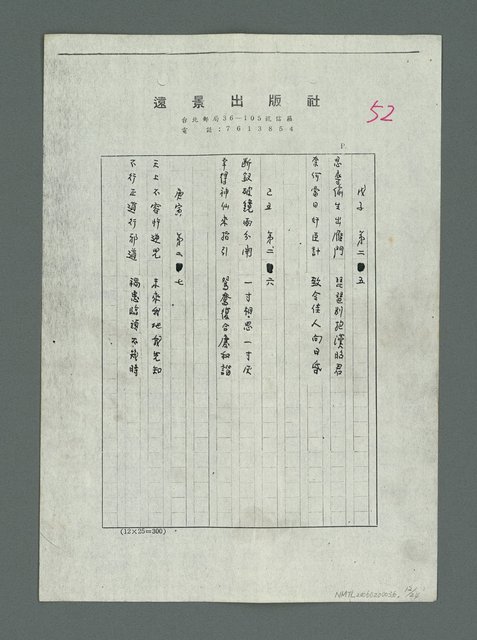 遠景出版社
台北郵局36-105號信箱
電話:7613854
52
P.
戊子 第二 五
忍恥偷生出雁門 琵琶別抱漢時君
奈何當日奸臣計 致令佳人向日昏
己丑 第二 六
斷釵破鏡兩分開 一寸相思一寸灰
幸得神仙來指引 鴛鴦復合慶和諧
庚寅 第二 七
天上不容奸邪 未來天地我先知
不行正道行邪道 禍患臨頭不移時
(12×25=300)
NMTL20060200036
12/24